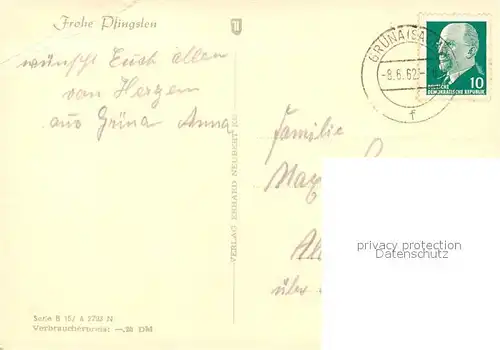 Frohe Pfingsten
wünscht Euch allen
von Herzen
aus Grüna Anna
Serie B 157 A 2703 N
Verbraucherpreis: —.20 DM
VERLAG ERHARD NEUBERT
GRÜNA(SA
-8.6.62.-
f
10
DEUTSCHE
DEMOKRATISCHE REPUBLIK
Familie
Max
über
privacy protection
Datenschutz